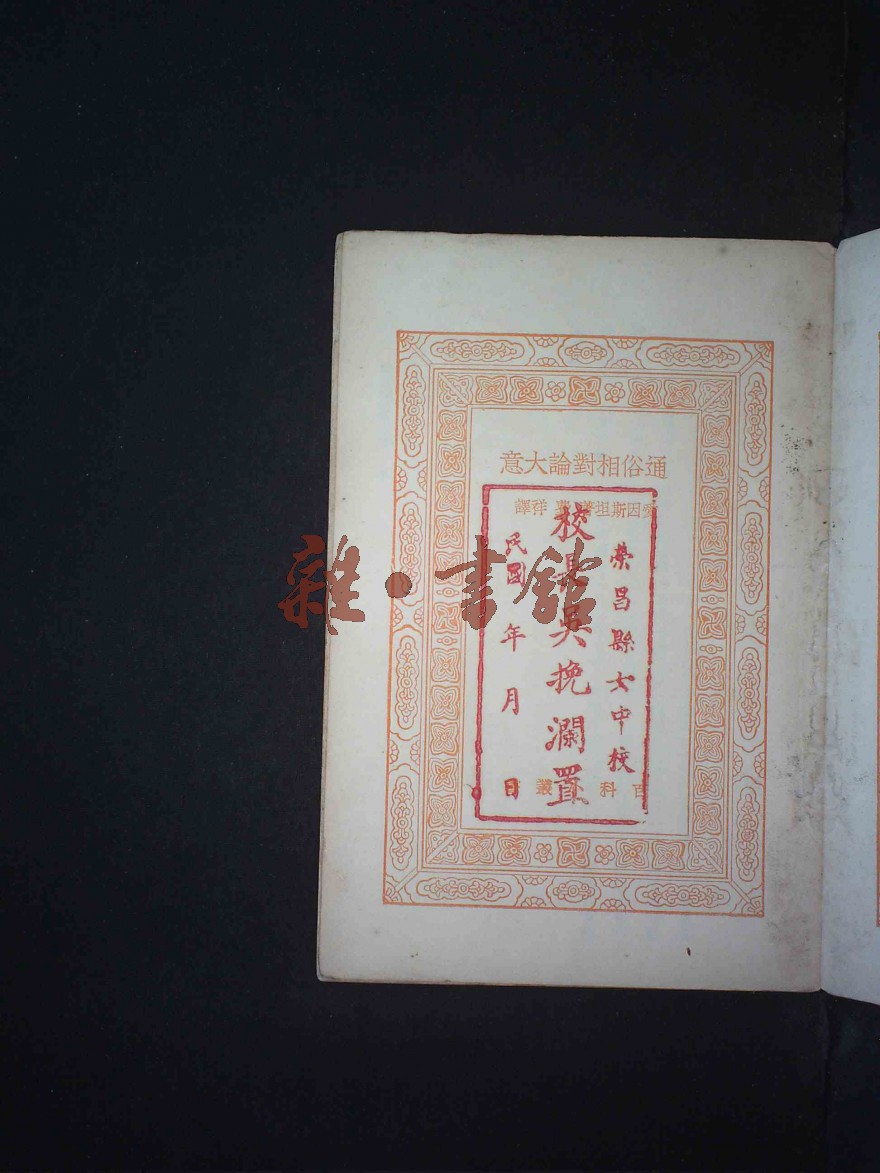 通俗相對論大意
愛因斯坦著 祥譯
榮昌縣女中校
校長吳挽瀾置
民國 年 月 日
百科 叢
雜·書館